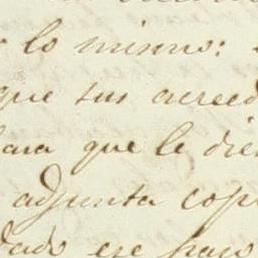 lo mismo:
que sus acreed
para que le die
adjunta copi
dado ese paso